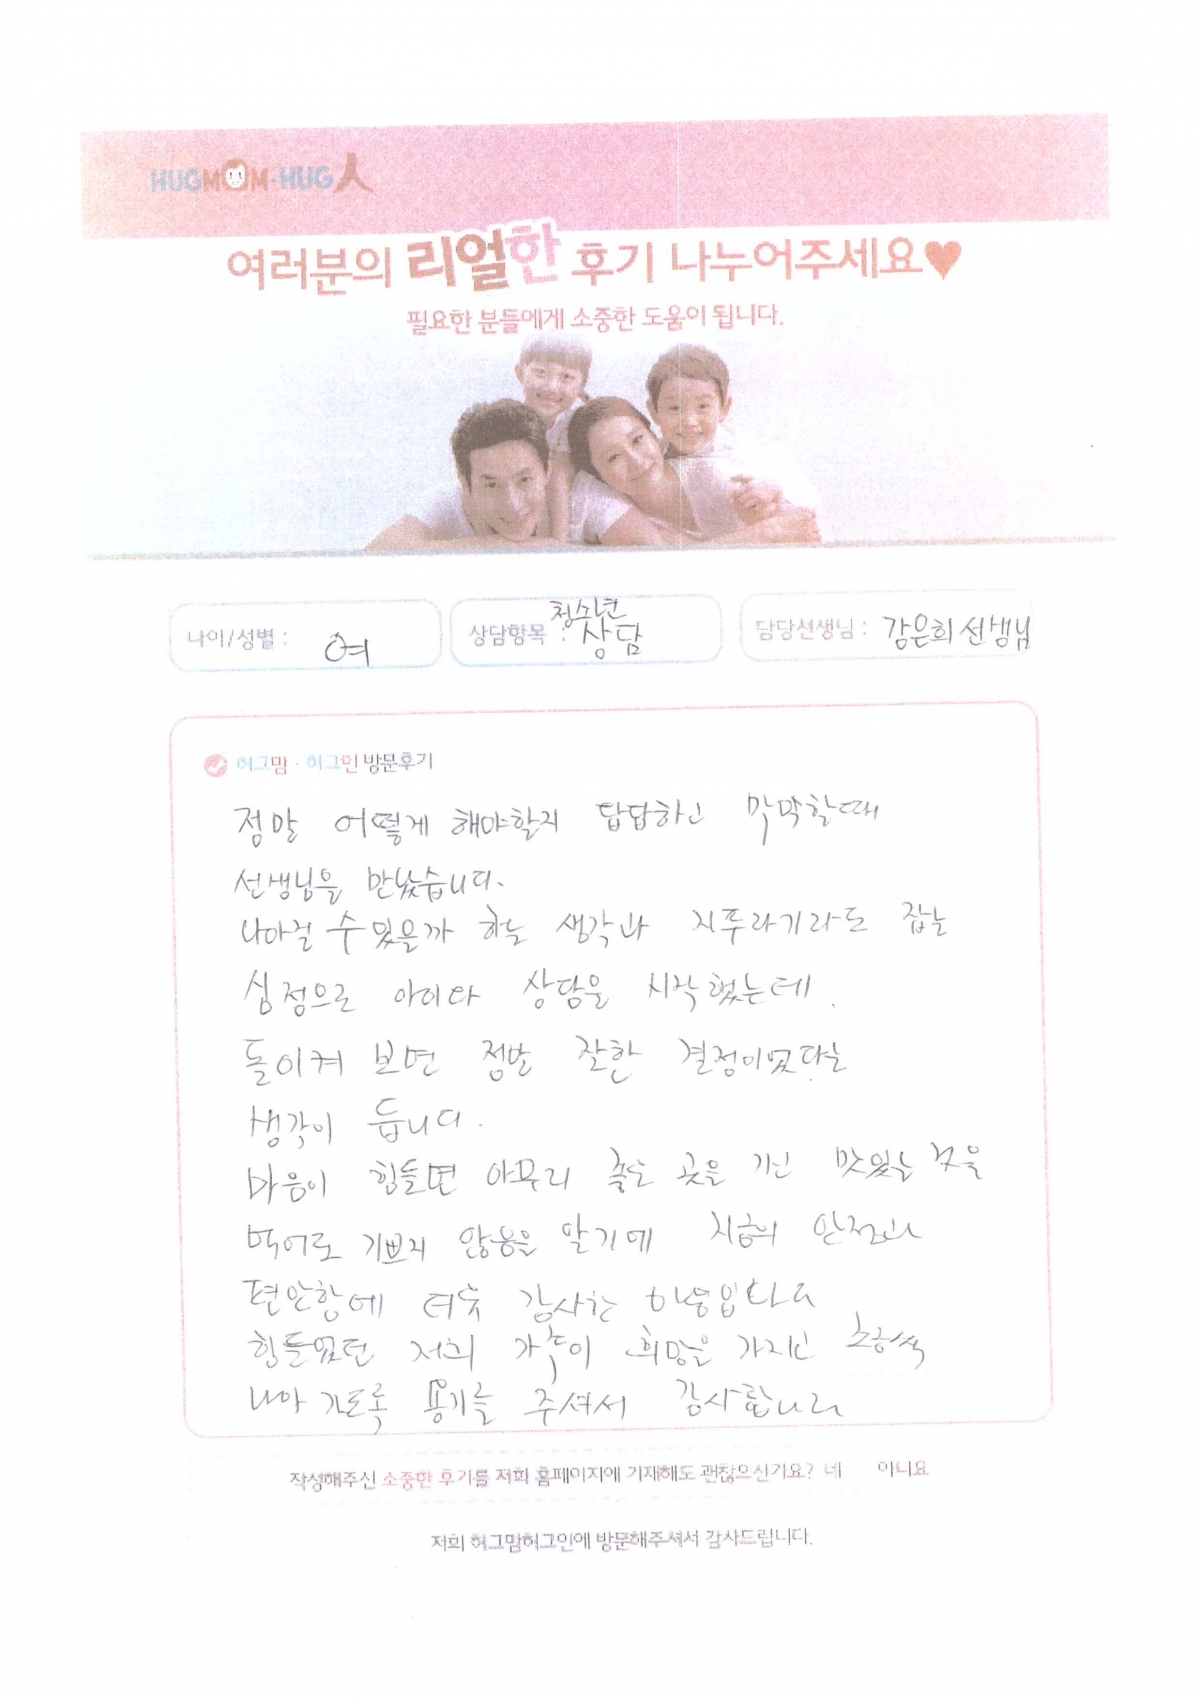 HUGMOM·HUG人
여러분의 리얼한 후기 나누어주세요♥
필요한 분들에게 소중한 도움이 됩니다.
나이/성별 : 여
상담항목 : 청소년 상담
담당선생님 : 감은희 선생님
허그맘·허그인 방문후기
정말 어떻게 해야할지 답답하고 막막할때
선생님을 만났습니다.
나아질 수 있을까 하는 생각과 지푸라기라도 잡는
심정으로 아이와 상담을 시작했는데.
돌이켜 보면 정말 잘한 결정이었다는
생각이 듭니다.
마음이 힘들면 아무리 좋은 곳을 가고 맛있는 것을
먹어도 기쁘지 않음을 알기에 지금의 안정과
편안함에 더욱 감사한 마음입니다
힘들었던 저희 가족이 희망을 가지고 조금씩
나아 가도록 용기를 주셔서 감사합니다
작성해주신 소중한 후기를 저희 홈페이지에 기재해도 괜찮으신가요? 네 아니요
저희 허그맘허그인에 방문해주셔서 감사드립니다.